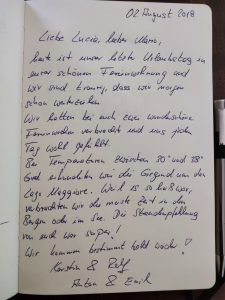 02 August 2018
Liebe Lucia, lieber Mario,
heute ist unser letzter Urlaubstag in
eurer schönen Ferienwohnung und
wir sind traurig, dass wir morgen
schon
Wir hatten bei euch zwei wunderschöne
Ferienwochen verbracht und uns jeden
Tag wohl gefühlt.
Bei Temperaturen zwischen 30° und 38°
Grad erkundeten wir die Gegend um den
Lago Maggiore. Weil es so heiß war,
verbrachten wir die meiste Zeit in den
Bergen oder im See. Die Strandempfehlung
von euch war super!
Wir kommen bestimmt bald wieder!
Kerstin & Ralf
Anton & Emil